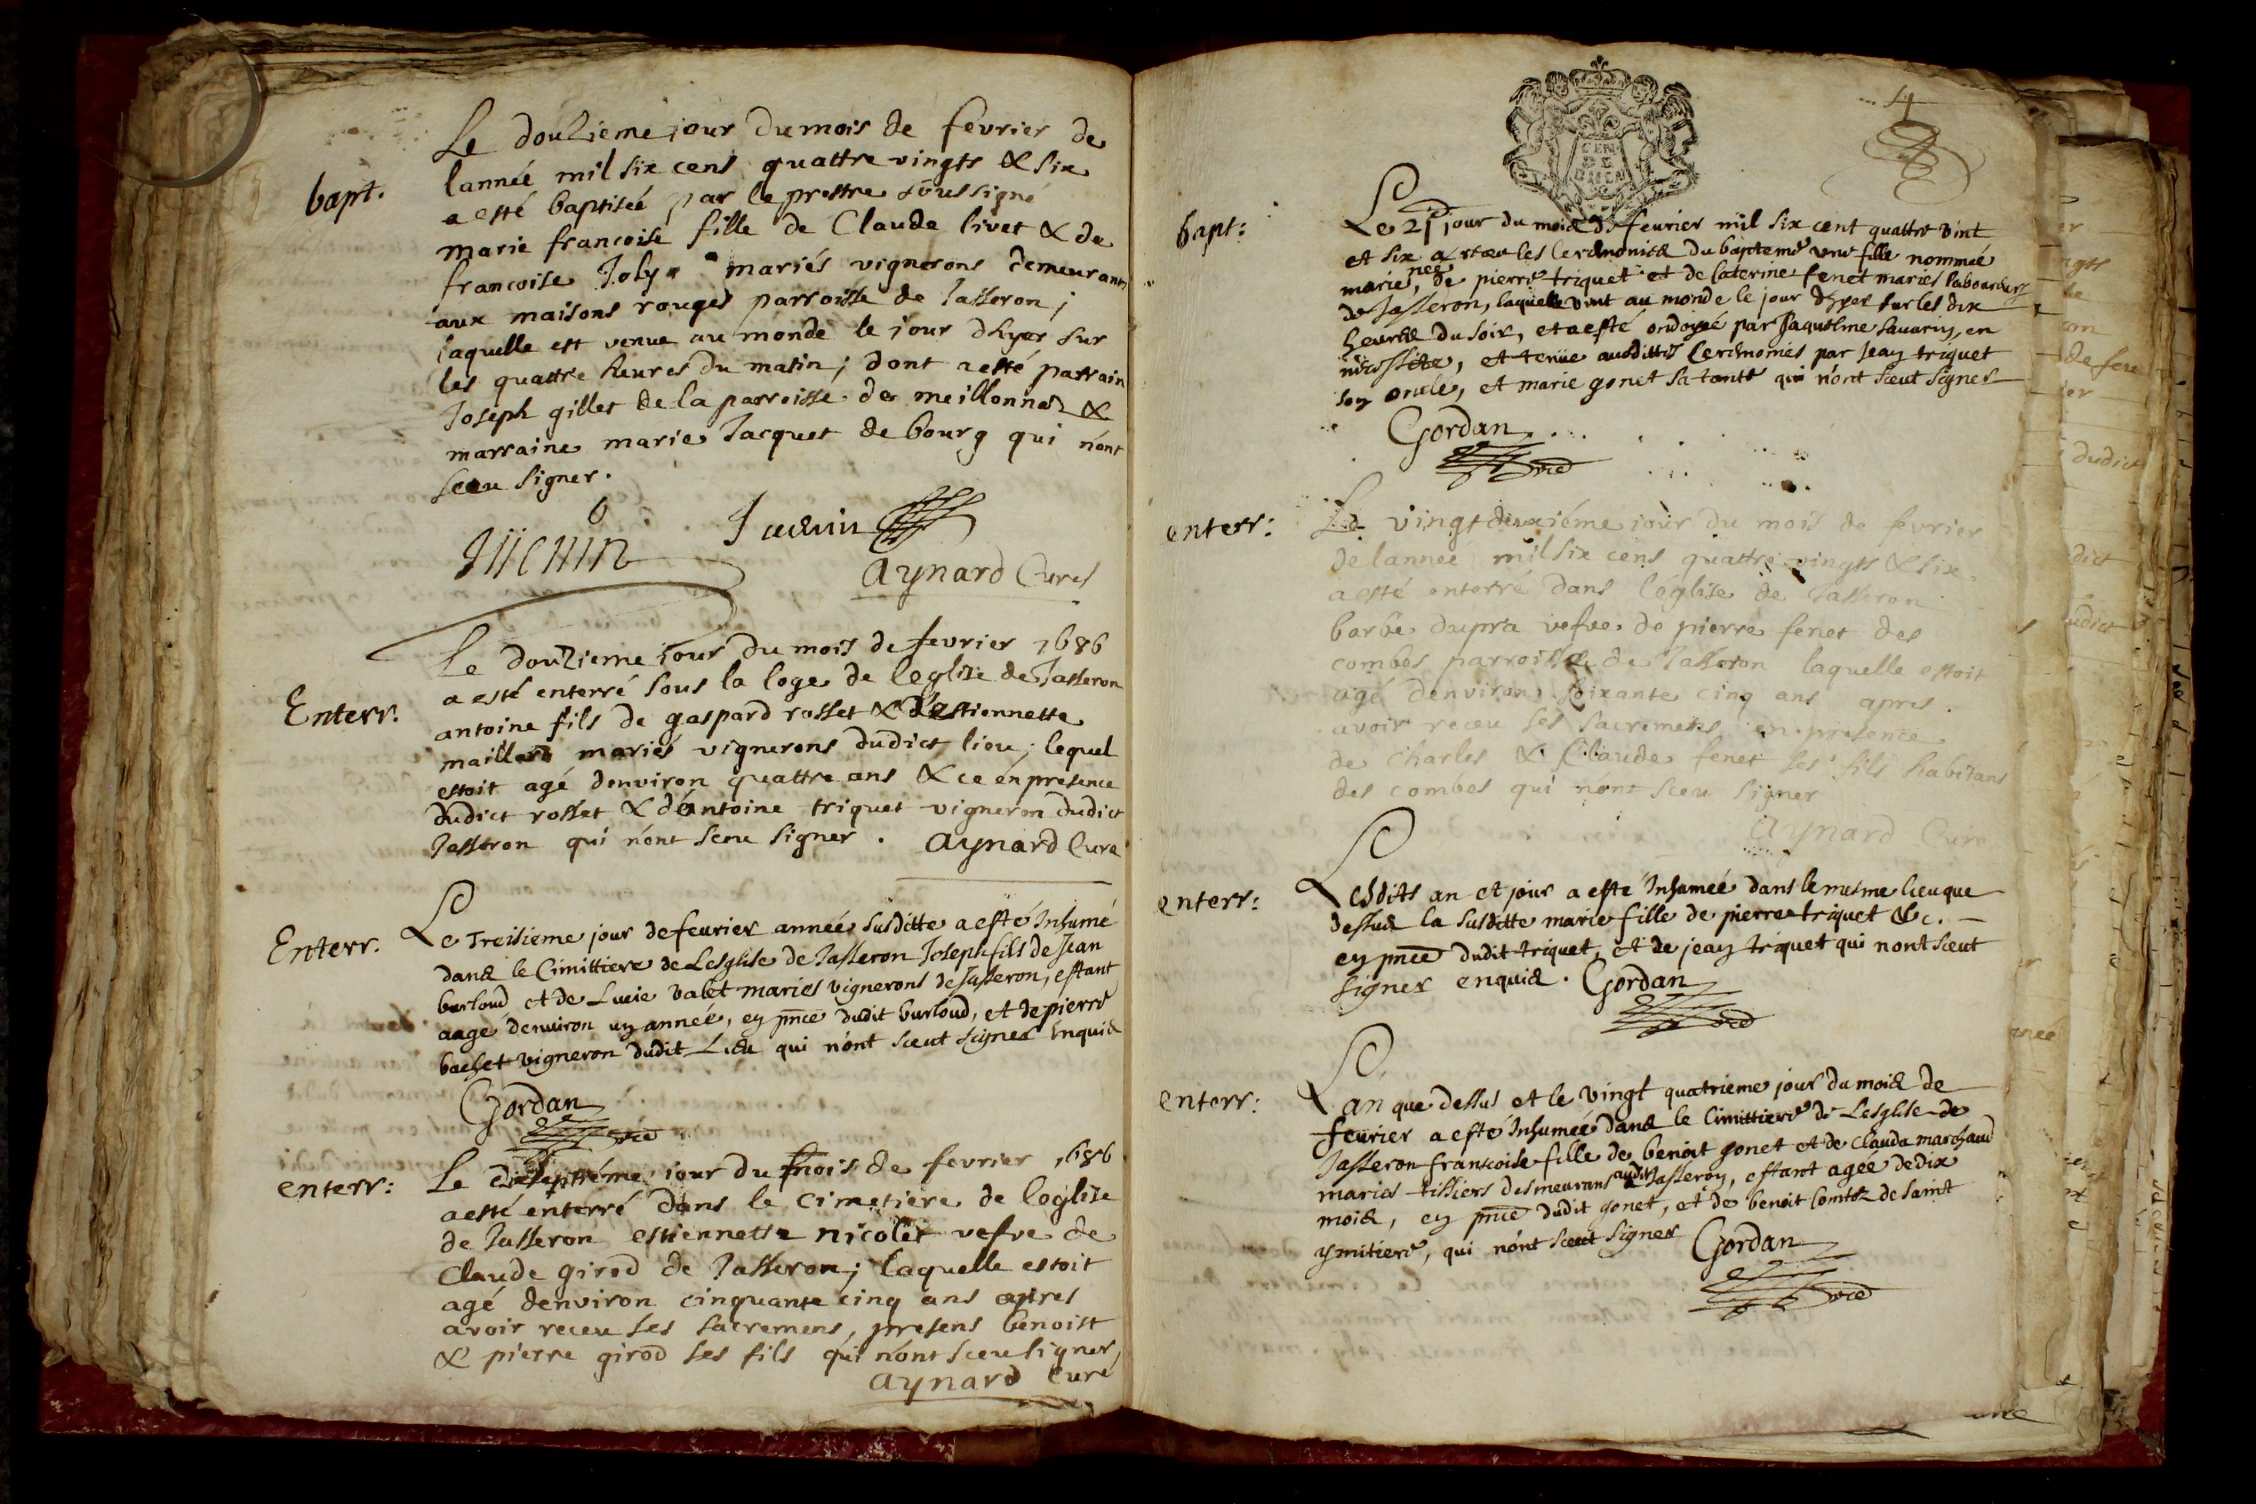 bapt.
Le douzieme jour du mois de fevrier de
lannée mil six cens quattre vingts & six
a esté baptisée par le prestre soussigné
marie francoise fille de Claude livet & de
francoise Joly mariés vignerons demeurants
aux maisons rouges parroisse de Jasseron ;
laquelle est venue au monde le jour dhyer sur
les quattre heures du matin ; dont a esté parrain
Joseph gillet de la parroisse de meillonnaz &
marraine marie Jacquet de bourg qui n'ont
sceu signer.
aynard Curé
Enterr.
Le douzieme jour du mois de fevrier 1686
a esté enterré sous la loge de leglise de Jasseron
antoine fils de gaspard rosset & destiennette
maillard mariés vignerons dudict lieu ; lequel
estoit agé denviron quattre ans & ce en presence
dudict rosset & d'antoine triquet vigneron dudict
Jasseron qui n'ont sceu signer . aynard Curé
Enterr.
Le Treisieme jour de feurier année susditte a esté Inhumé
dans le Cimittiere de Lesglise de Jasseron Joseph fils de Jean
burloud et de Lucie valet mariés vignerons de Jasseron, estant
aagé denuiron un année, en pnce dudit burloud, et de pierre
bachet vigneron dudit Lieu qui n'ont sceut signer Enquis
Gordan
vic
enterr:
Le dixseptiéme jour du mois de fevrier 1686
a esté enterré dans le cimetiere de leglise
de Jasseron estiennette nicolet vefve de
Claude girod de Jasseron ; laquelle estoit
agé denviron cinquante cinq ans apres
avoir receu ses sacremens, presens benoist
& pierre girod ses fils qui n'ont sceu signer,
aynard Curé
4
GEN
DE
bapt:
Le 21 jour du mois de feurier mil six cent quattre vint
et six a receu les ceremonies du bapteme une fille nommée
marie, née de pierre triquet et de caterine fenet mariés laboureurs
de Jasseron, laquelle vint au monde le jour dhyer sur les dix
heures du soir, et a esté ondoyée par Jaquelme sauarin, en
necessite, et tenüe ausdittes Ceremonies par Jean triquet
son oncle, et marie gonet sa tante qui n'ont sceut signer
Gordan
vic
enterr:
Le vingt deuxiéme jour du mois de fevrier
de lannee mil six cens quattre vingts & six
a esté enterré dans l'église de Jasseron
barbe dupra vefve de pierre fenet des
combes parroisse de Jasseron laquelle estoit
agé denviron soixante cinq ans apres
avoir receu ses sacremens en presence
de Charles & Claude fenet ses fils habitans
des combes qui n'ont sceu signer
aynard Curé
enterr:
Lesdits an et jour a esté Inhumée dans le mesme lieu que
dessus la susditte marie fille de pierre triquet &c.
en pnce dudit triquet, et de jean triquet qui nont sceut
signer enquis. Gordan
vic
enterr:
Lan que dessus et le vingt quatrieme jour du mois de
feurier a esté Inhumée dans le Cimittiere de Lesglise de
Jasseron francoise fille de benoit gonet et de clauda marchand
mariés tissiers desmeurans audit Jasseron, estant agée de dix
mois, en pnce dudit gonet, et de benoit Comte de saint
ymitiere, qui n'ont sceut signer Gordan
vic